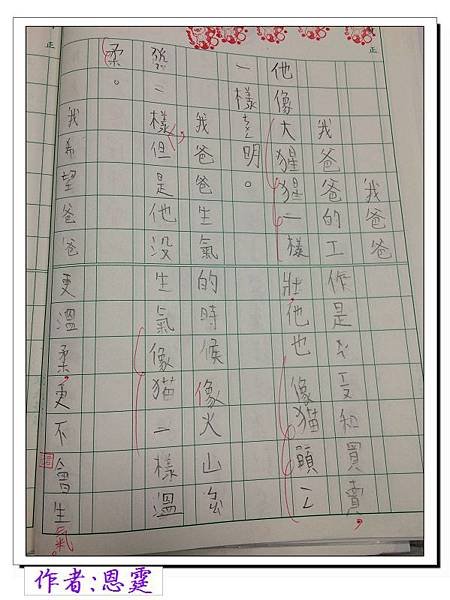 正
正
我爸爸
我爸爸的工作是和買賣，
他像大猩猩一樣壯，他也像貓頭ㄥ
一樣明。
我爸爸生氣的時候像火山
發一樣但是他沒生氣像貓一樣溫
柔。
我希望爸爸更溫柔，更不會生氣。
作者:恩霆